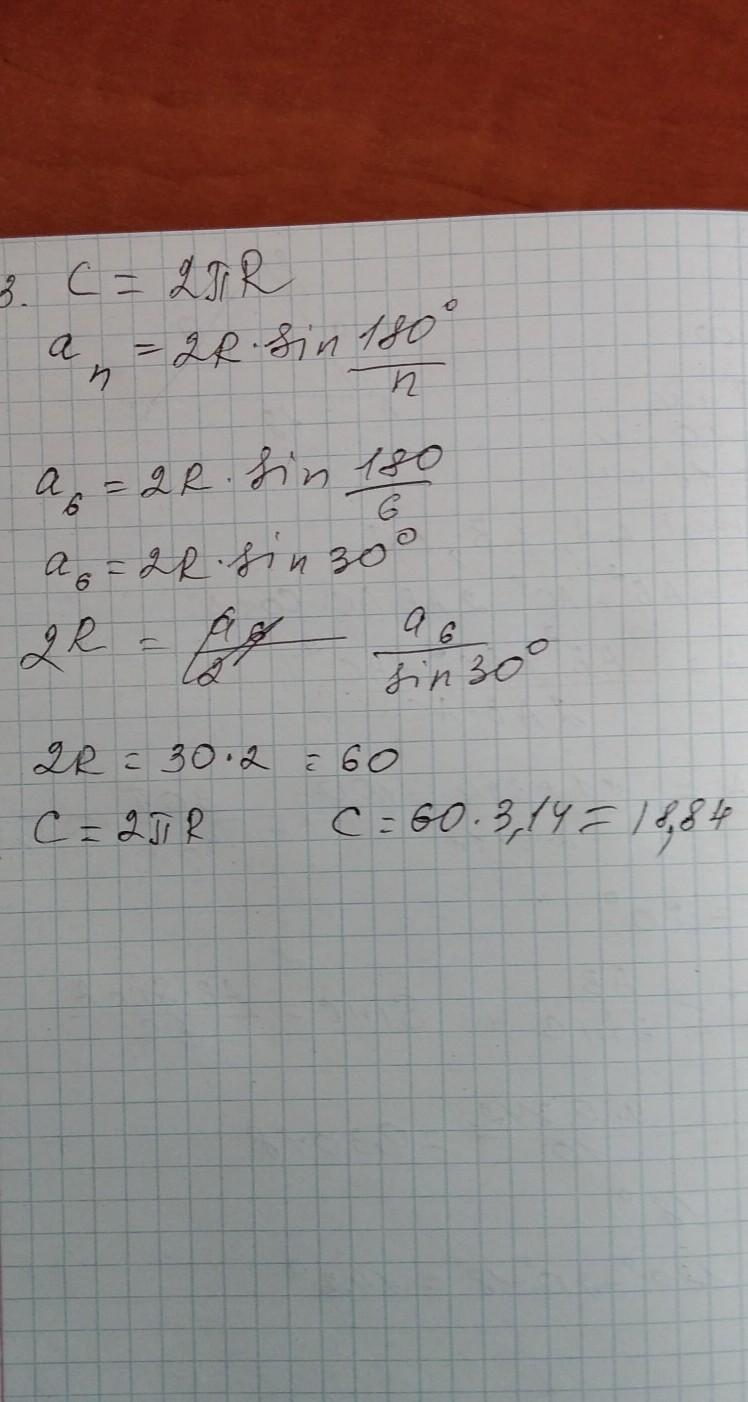 3. C = 2πR
a_n = 2R · sin 180°/n
a_6 = 2R · sin 180/6
a_6 = 2R · sin 30°
2R = a_6/sin 30°
2R = 30 · 2 = 60
C = 2πR C = 60 · 3,14 = 18,84